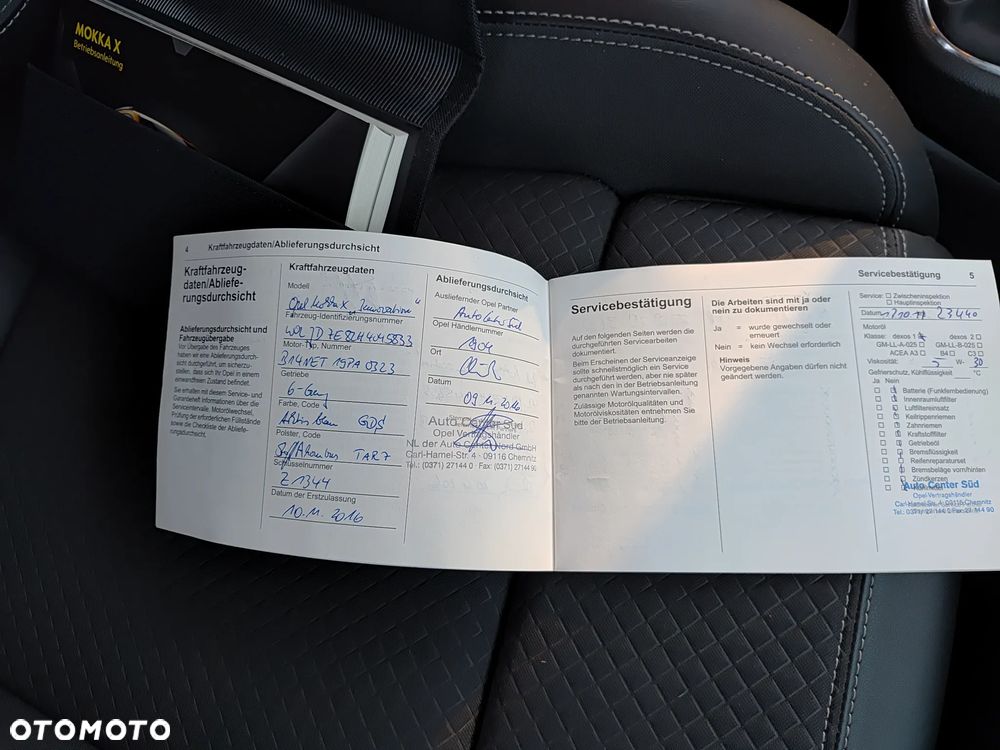 MOKKA X
Betriebsanleitung
4 Kraftfahrzeugdaten/Ablieferungsdurchsicht
Kraftfahrzeug-
daten/Abliefe-
rungsdurchsicht
Ablieferungsdurchsicht und
Fahrzeugübergabe
Vor Übergabe des Fahrzeuges
haben wir eine Ablieferungs-
durchsicht durchgeführt, um sicherzu-
stellen, dass sich Ihr Opel in einem
einwandfreien Zustand befindet.
Sie erhalten mit diesem Service- und
Garantieheft Informationen über die
Serviceintervalle, Motorölwechsel,
Prüfung der erforderlichen Füllstände
sowie die Checkliste der Abliefe-
rungsdurchsicht.
Kraftfahrzeugdaten
Modell
Opel Mokka X "Innovation"
Fahrzeug-Identifizierungsnummer
Motor-Nr., Nummer
B14NET 19PA0323
Getriebe
6-Gang
Farbe, Code
GDS
Polster, Code
TAR7
Schlüsselnummer
Z1344
Datum der Erstzulassung
10.11.2016
Ablieferungsdurchsicht
Ausliefernder Opel Partner
Auto Center Süd
Opel Händlernummer
Ort
Datum
09.11.2016
Auto Center Süd
Opel Vertragshändler
NL der Auto Center Nord GmbH
Carl-Hamel-Str. 4 · 09116 Chemnitz
Tel.: (0371) 27144 0 Fax: (0371) 27144 90
Servicebestätigung 5
Servicebestätigung
Auf den folgenden Seiten werden die
durchgeführten Servicearbeiten
dokumentiert.
Beim Erscheinen der Serviceanzeige
sollte schnellstmöglich ein Service
durchgeführt werden, aber nie später
als nach den in der Betriebsanleitung
genannten Wartungsintervallen.
Zulässige Motorölqualitäten und
Motorölviskositäten entnehmen Sie
bitte der Betriebsanleitung.
Die Arbeiten sind mit ja oder
nein zu dokumentieren
Ja = wurde gewechselt oder
erneuert
Nein = kein Wechsel erforderlich
Hinweis
Vorgegebene Angaben dürfen nicht
geändert werden.
Service: ☐ Zwischeninspektion
☐ Hauptinspektion
Datum 23440
Motoröl
Klasse: dexos 1 dexos 2 ☐
GM-LL-A-025 ☐ GM-LL-B-025 ☐
ACEA A3 ☐ B4 ☐ C3 ☐
Viskosität: 5 W- 30
Gefrierschutz, Kühlflüssigkeit °C
Ja Nein
Batterie (Funkfernbedienung)
Innenraumluftfilter
Luftfiltereinsatz
Keilrippenriemen
Zahnriemen
Kraftstofffilter
Getriebeöl
Bremsflüssigkeit
Reifenreparaturset
Bremsbeläge vorn/hinten
Zündkerzen
Auto Center Süd
Opel-Vertragshändler
Carl-Hamel-Str. 4, 09116 Chemnitz
Tel.: 0371/ 27 144 0 Fax: 27 144 90
OTOMOTO